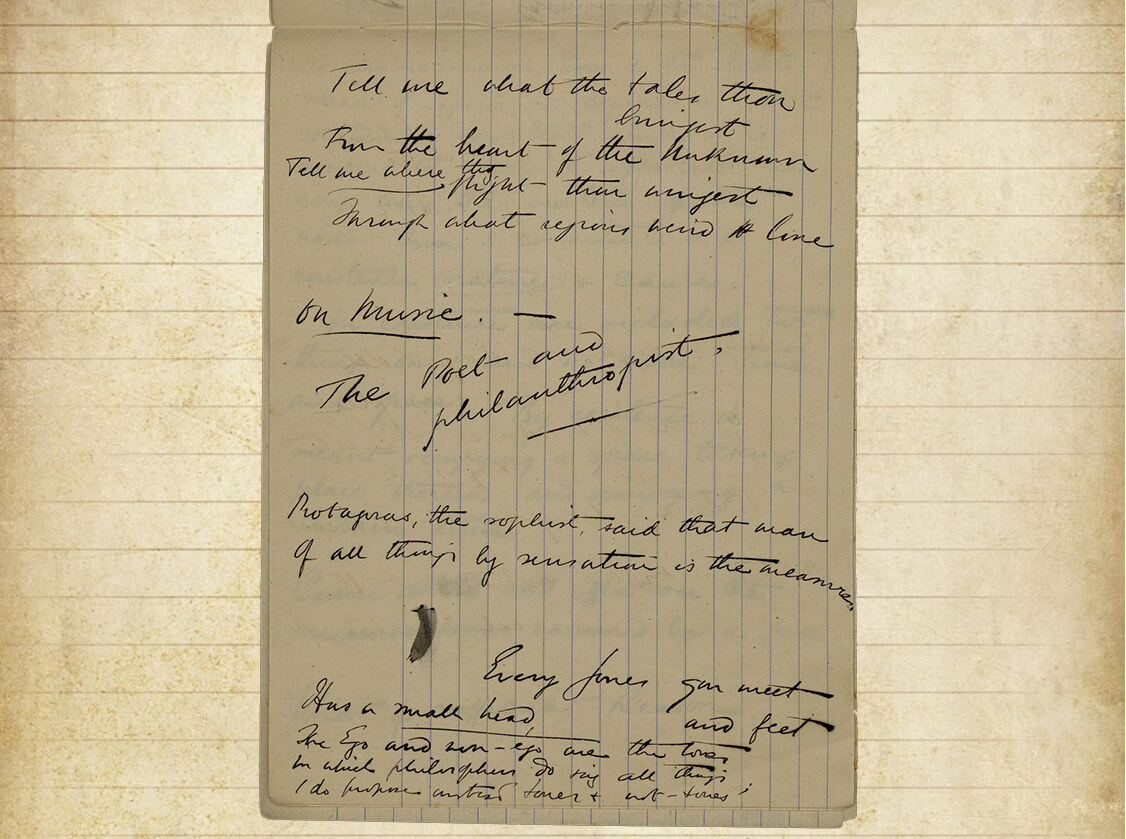 Tell me what the tales thou
bringest
From the heart of the Unknown
Tell me where thy
flight thou wingest
Through what regions weird & lone
On Music. —
The Poet and
philanthropist.
Protagoras, the sophist, said that man
Of all things by sensation is the measure.
Every Jones you meet
Has a small head, and feet
The Ego and non-ego are the
in which philosophers do sing all things;
I do propose instead Jones & not-Jones